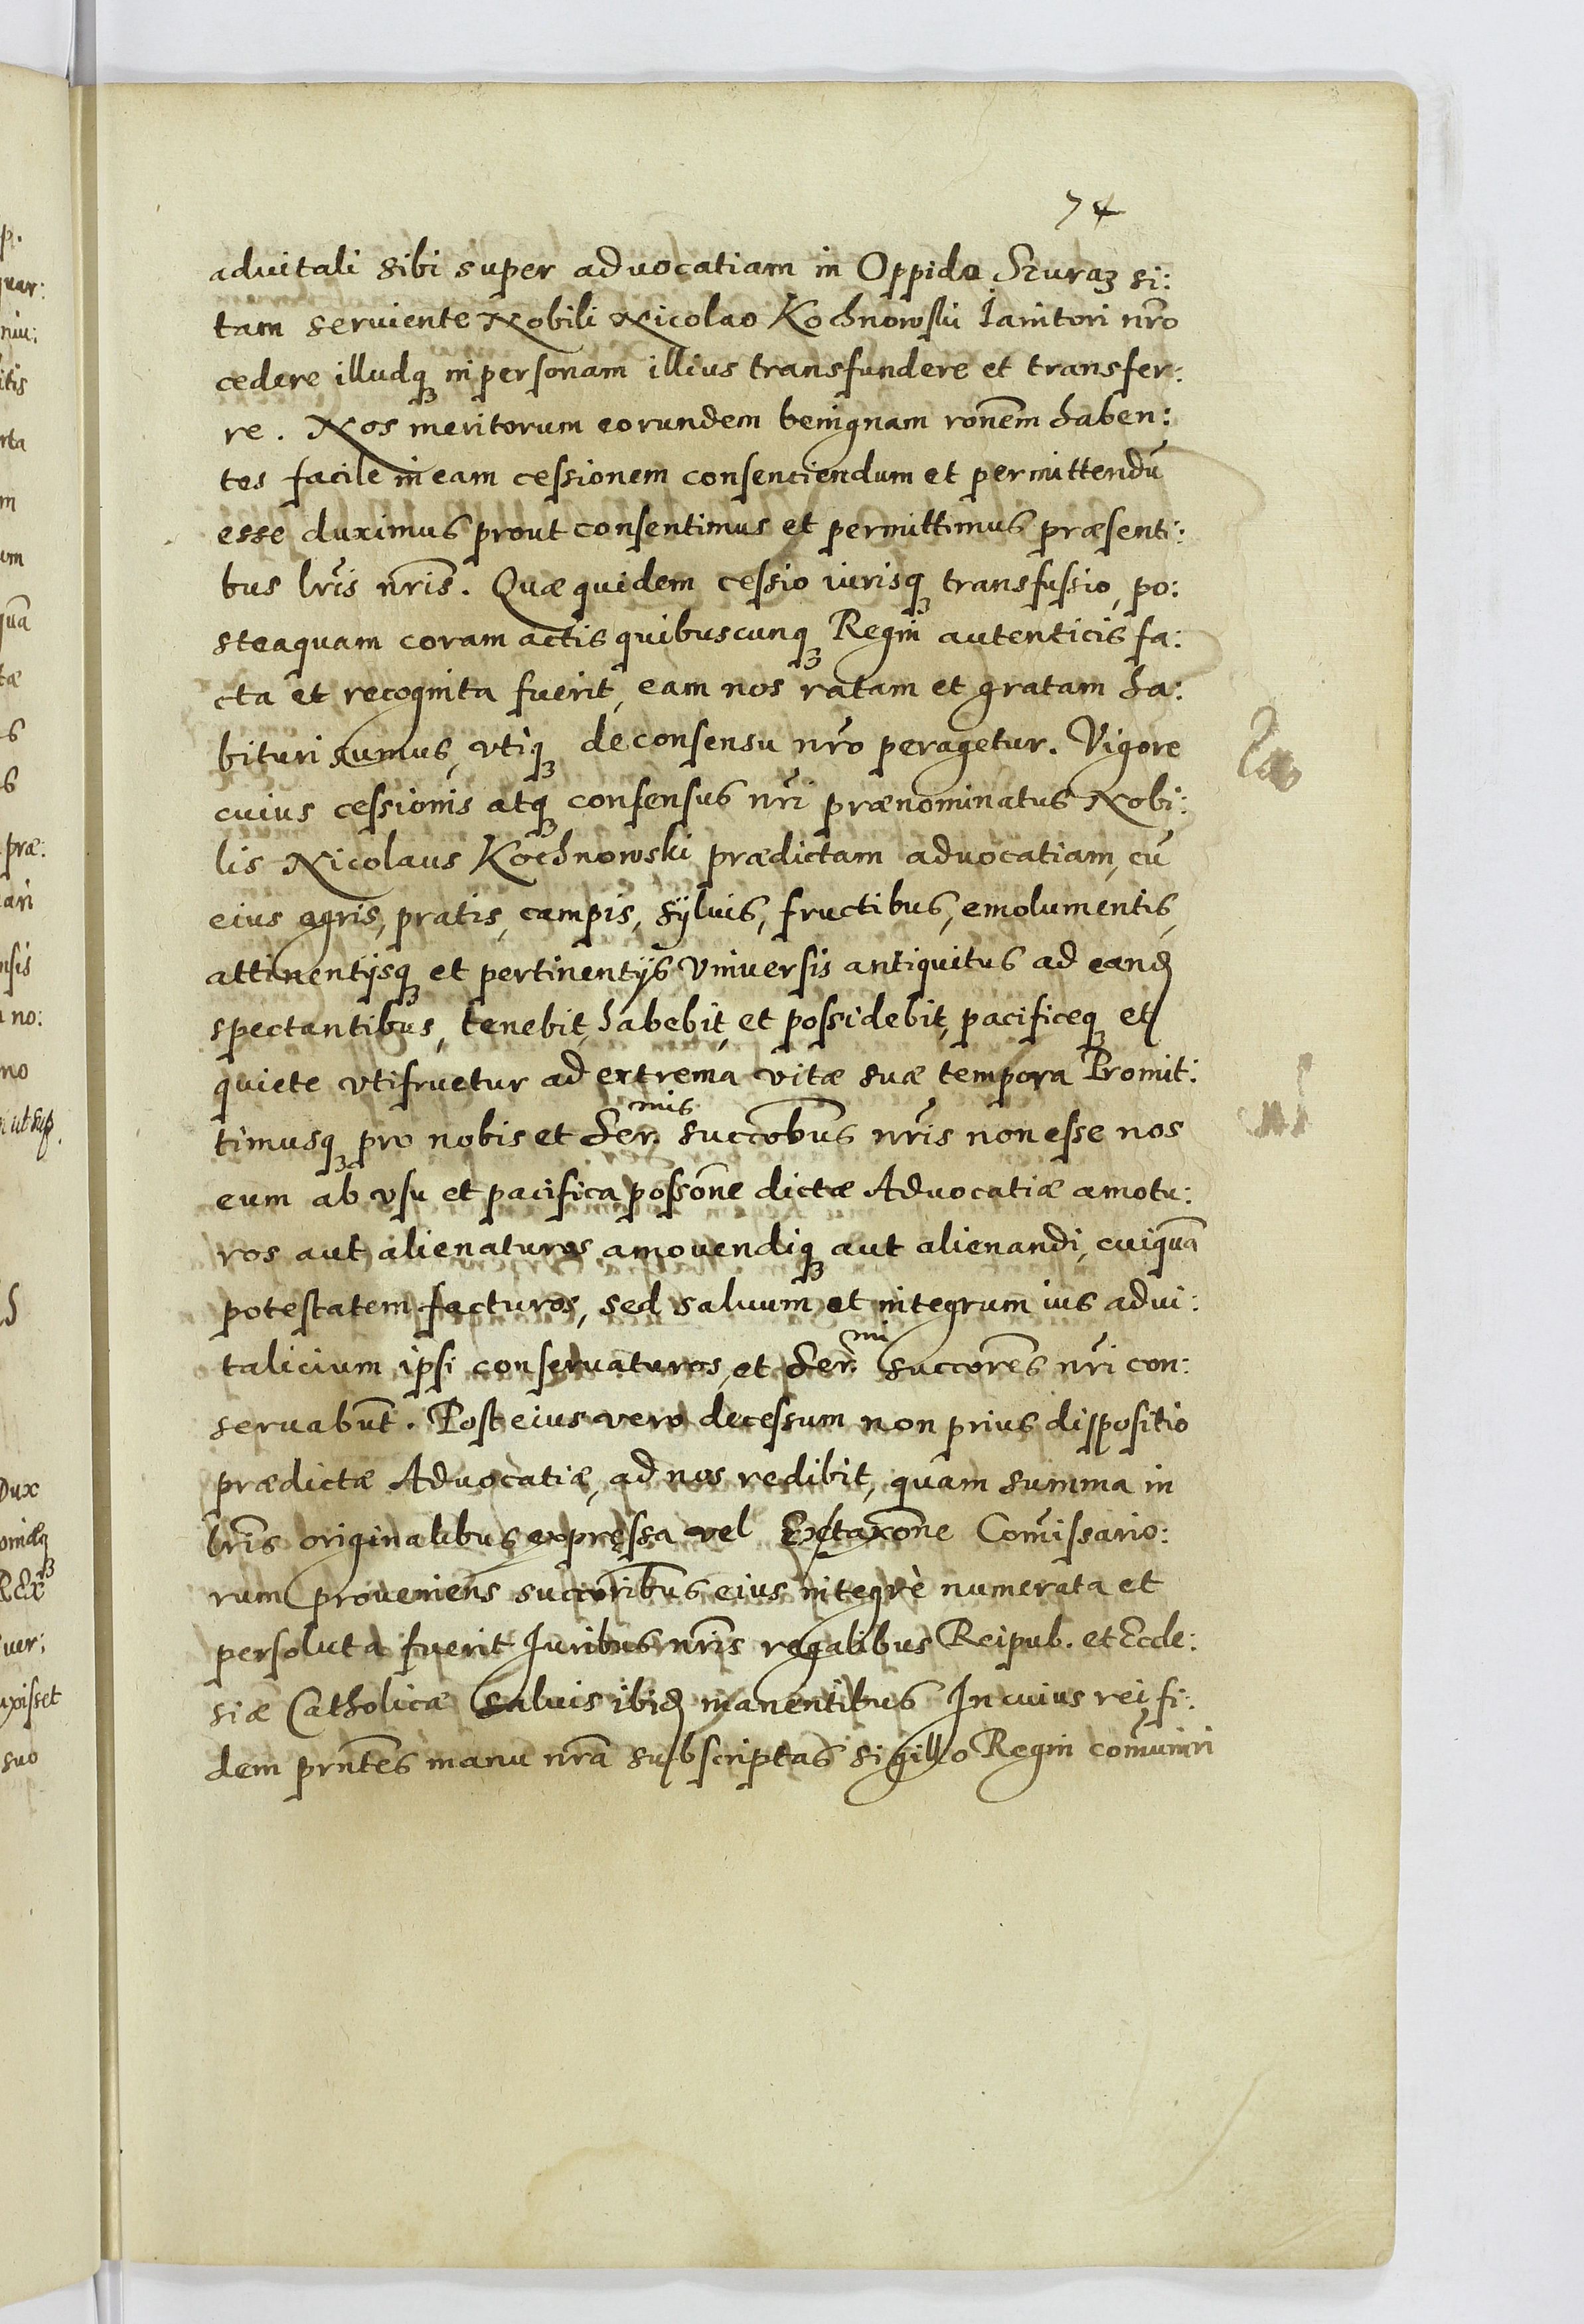 74
aduitali sibi super aduocatiam in Oppido Szuraz si:
tam seruiente Nobili Nicolao Kochnowski Ianitori nr̃o
cedere illudq₃ in personam illius transfundere et transfer:
re. Nos meritorum eorundem benignam rõnem haben:
tes facile in eam cessionem consenciendum et permittendũ
esse duximus prout consentimus et permittimus præsenti:
bus lr̃is nr̃is. Quæ quidem cessio iurisq₃ transfussio, po:
steaquam coram actis quibuscunq₃ Regni autenticis fa:
cta et recognita fuerit, eam nos ratam et gratam ha:
bituri sumus, vtiq₃ de consensu nr̃o peragetur. Vigore
cuius cessionis atq₃ consensus nr̃i prænominatus Nobi:
lis Nicolaus Kochnowski prædictam aduocatiam, cũ
eius agris, pratis, campis, sÿluis, fructibus, emolumentis,
attinentijsq₃ et pertinentijs Vniuersis antiquitus ad eand
spectantibus, tenebit, habebit, et possidebit, pacificeq₃ et
quiete vtifruetur ad extrema vitæ suæ tempora Promit:
timusq₃ pro nobis et Ser. mis succõbus nr̃is non esse nos
eum ab vsu et pacifica possõne dictæ Aduocatiæ amotu:
ros aut alienaturos, amouendiq₃ aut alienandi, cuiquã
potestatem facturos, sed saluum et integrum ius adui:
talicium ipsi conseruaturos, et Ser. mi succorẽs nr̃i con:
seruabũt. Post eius vero decessum non prius dispositio
prædictæ Aduocatiæ, ad nos redibit, quam summa in
lr̃is originalibus expressa vel Ex taxõne Com̃issario:
rum proueniens succorib̃us eius integrè numerata et
persoluta fuerit Iuribus nr̃is regalibus Reipub. et Eccle:
siæ Catholicæ saluis ibid manentibus In cuius rei fi:
dem prñtes manu nr̃a subscriptas sigillo Regni com̃uniri